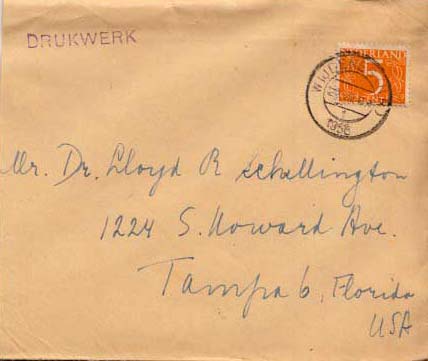 DRUKWERK
NEDERLAND
5
1958
Mr. Dr. Lloyd R Schellington
1224 S. Howard Ave.
Tampa 6, Florida
USA